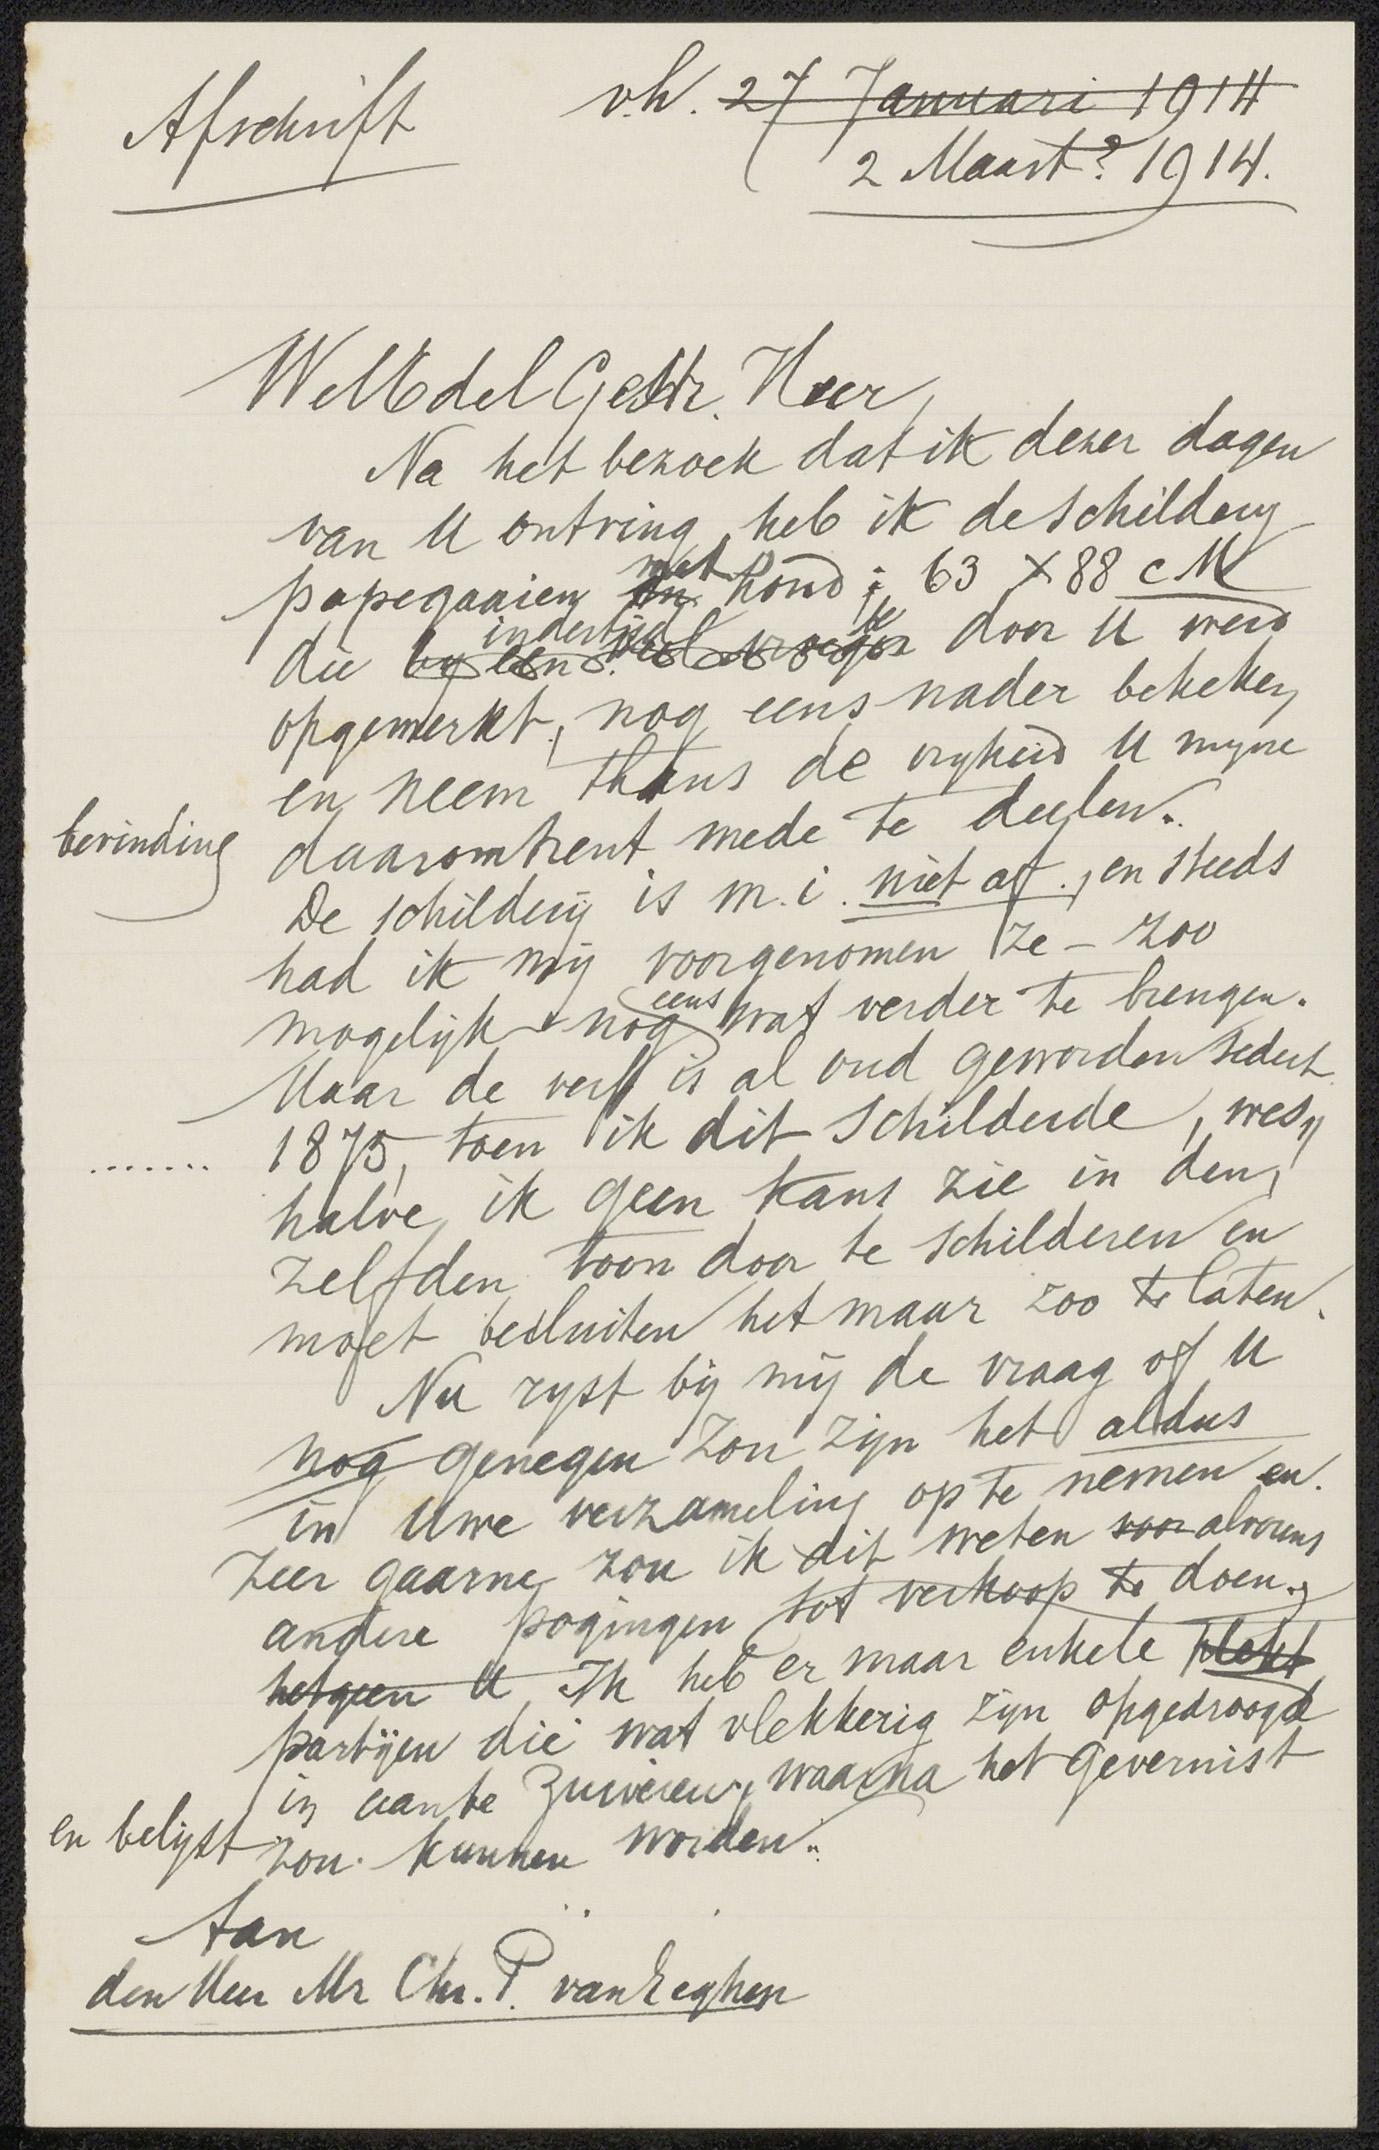 Afschrift
v.h. 27 Januari 1914
2 Maart? 1914.
WelEdelGestr. Heer,
Na het bezoek dat ik dezer dagen
van U ontving, heb ik de schildery
papegaaien met hond; 63 x 88 cM
die by een indertijd veel vroeger door U werd
opgemerkt, nog eens nader bekeken
en neem thans de vryheid U myne
bevinding daaromtrent mede te deelen.
De schilderij is m.i. niet af., en steeds
had ik mij voorgenomen ze - zoo
mogelijk - nog eens wat verder te brengen.
Maar de verf is al oud geworden sedert
....... 1875, toen ik dit schilderde, wes,,
halve ik geen kans zie in den,
zelfden toon door te schilderen en
moet besluiten het maar zoo te laten.
Nu ryst bij mij de vraag of U
nog genegen zou zijn het aldus
in Uwe verzameling op te nemen en.
Zeer gaarne zou ik dit weten voor alvorens
andere pogingen tot verkoop te doen.,
hetgeen U Ik heb er maar enkele
partijen die wat vlekkerig zijn opgedroogd
in aan te zuiveren, waarna het gevernist
en belijst zou kunnen worden.
Aan
den Heer Mr Chr. P. van Eeghen